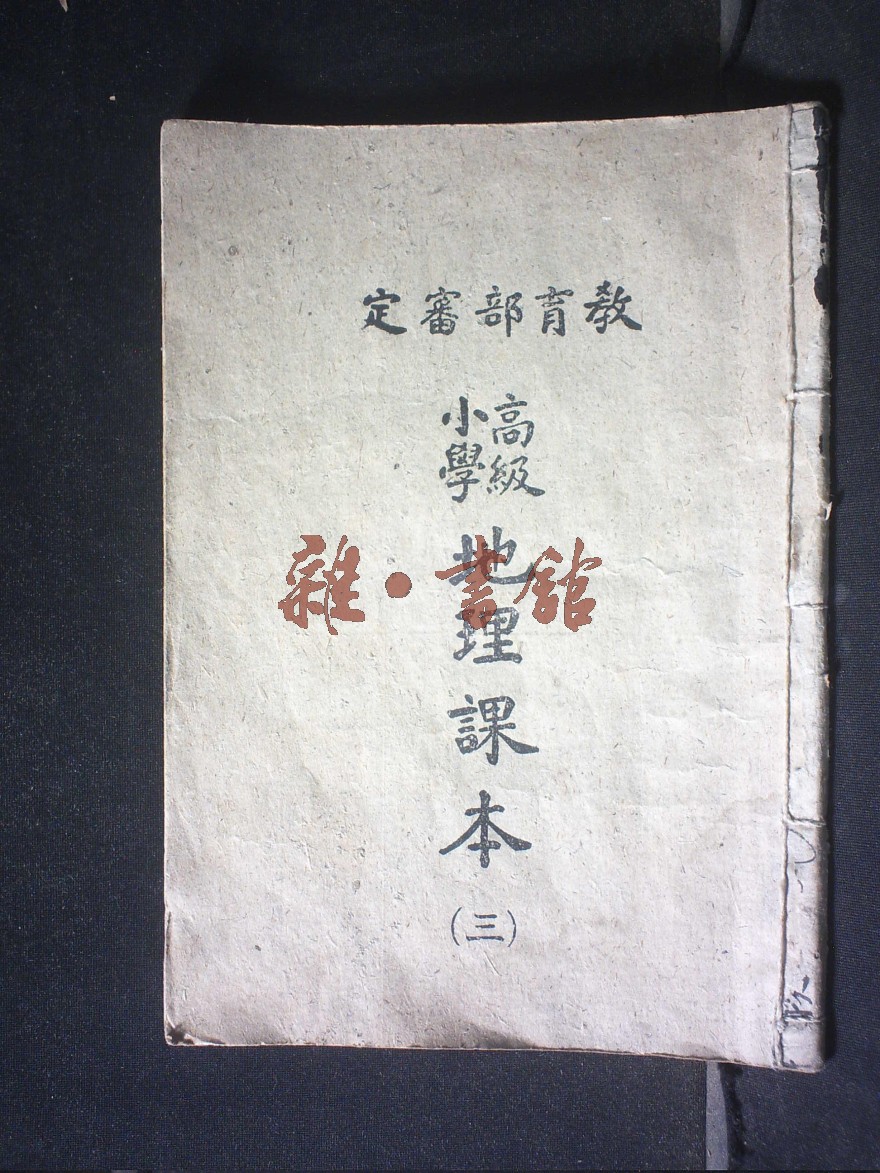 教育部審定
高級
小學
地理課本
(三)
雜·書館